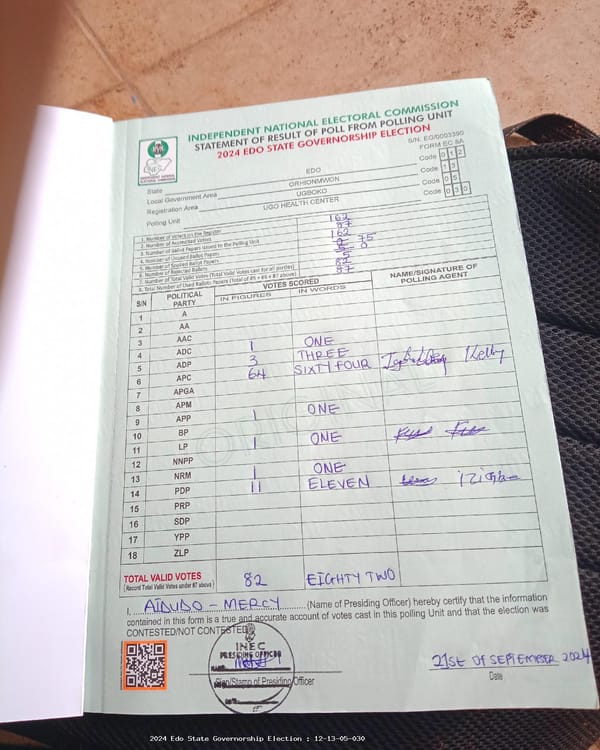 INDEPENDENT NATIONAL ELECTORAL COMMISSION
STATEMENT OF RESULT OF POLL FROM POLLING UNIT
2024 EDO STATE GOVERNORSHIP ELECTION
S/N. EG/0003390
FORM EC 8A
State EDO Code 0 1 2
Local Government Area ORHIONMWON Code 1 3
Registration Area UGBOKO Code 0 5
Polling Unit UGO HEALTH CENTER Code 0 3 0
1. Number of Voters on the Register 162
2. Number of Accredited Voters 87
3. Number of Ballot Papers issued to the Polling Unit 162
4. Number of Unused Ballot Papers 75
5. Number of Spoiled Ballot Papers 0
6. Number of Rejected Ballots 5
7. Number of Total Valid Votes (Total Valid Votes cast for all parties) 82
8. Total Number of Used Ballots Papers (Total of #5 + #6 + #7 above) 87
S/N POLITICAL PARTY VOTES SCORED NAME/SIGNATURE OF POLLING AGENT
IN FIGURES IN WORDS
1 A
2 AA
3 AAC
4 ADC 1 ONE
5 ADP 3 THREE
6 APC 64 SIXTY FOUR Kelly
7 APGA
8 APM
9 APP 1 ONE
10 BP
11 LP 1 ONE
12 NNPP
13 NRM 1 ONE
14 PDP 11 ELEVEN
15 PRP
16 SDP
17 YPP
18 ZLP
TOTAL VALID VOTES 82 EIGHTY TWO
(Record Total Valid Votes under #7 above)
I, AIDUDO - MERCY (Name of Presiding Officer) hereby certify that the information
contained in this form is a true and accurate account of votes cast in this polling Unit and that the election was
CONTESTED/NOT CONTESTED
INEC
PRESIDING OFFICER
Sign/Stamp of Presiding Officer
21ST OF SEPTEMBER 2024
Date
2024 Edo State Governorship Election : 12-13-05-030